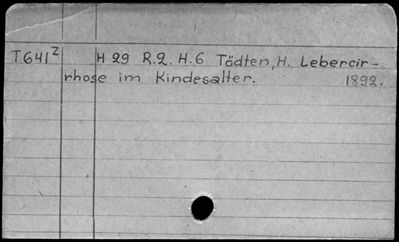 T641² H 29 R.2. H.6 Tödten, H. Lebercir-
rhose im Kindesalter. 1892.